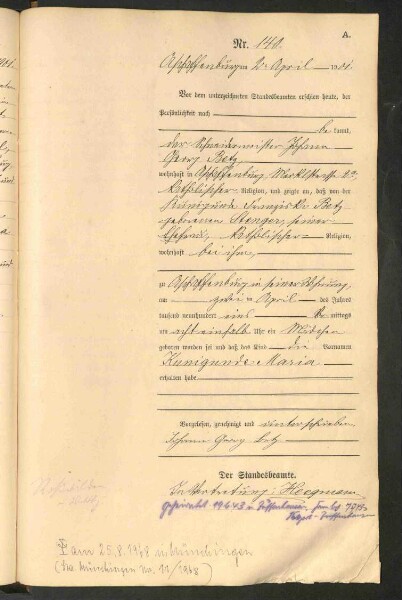 A.
Nr. 140.
Aschaffenburg am 2. April 1901.
Vor dem unterzeichneten Standesbeamten erschien heute, der
Persönlichkeit nach
be kannt,
der Schneidermeister Johann
Georg Betz,
wohnhaft in Aschaffenburg, Marktstraße
katholischer Religion, und zeigte an, daß von der
Kunigunde Franziska Betz
geborenen Stenger, seiner
Ehefrau, katholischer Religion,
wohnhaft bei ihm,
zu Aschaffenburg in seiner Wohnung,
am zwei ten April des Jahres
tausend neunhundert eins mittags
um acht einhalb Uhr ein Mädchen
geboren worden sei und daß das Kind die Vornamen
Kunigunde Maria
erhalten habe
Vorgelesen, genehmigt und unterschrieben
Johann Georg Betz
Der Standesbeamte.
In Vertretung: Hoegmann
geheiratet 19.6.43 in Zuffenhausen
Zuffenhausen
† am 25.8.1968 in Münchingen
(Sta. Münchingen No. 11/1968)